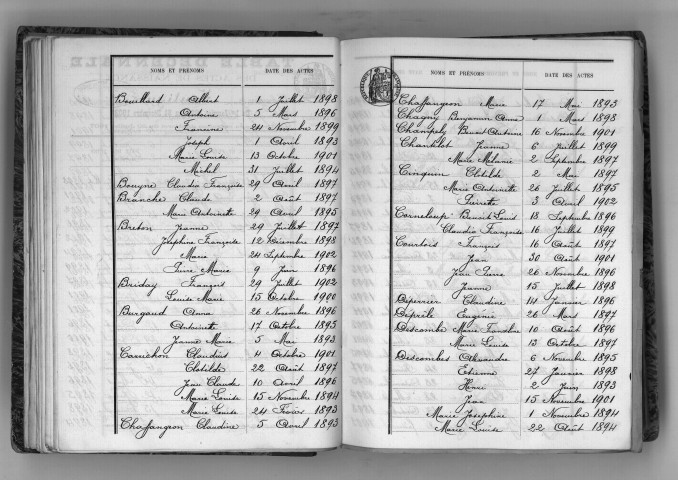 NOMS ET PRÉNOMS DATE DES ACTES
Bouillard Albert 1 Juillet 1898
Antoine 5 Mars 1896
Francine 24 Novembre 1899
Joseph 1 Avril 1893
Marie Louise 13 Octobre 1901
Michel 31 Juillet 1894
Claudia Françoise 29 Avril 1897
Branche Claude 2 Août 1897
Marie Antoinette 29 Avril 1895
Breton Jeanne 29 Juillet 1897
Joséphine Françoise 12 Décembre 1898
Marie 24 Septembre 1902
Pierre Marie 9 Juin 1896
Briday François 29 Juillet 1902
Louise Marie 15 Octobre 1900
Burgaud Anna 26 Novembre 1896
Antoinette 17 Octobre 1895
Jeanne Marie 5 Mai 1893
Carrichon Claudius 4 Octobre 1901
Clotilde 22 Août 1897
Jean Claude 10 Avril 1896
Marie Louise 15 Novembre 1894
Marie Louise 24 Février 1893
Chaffangeon Claudine 5 Avril 1893
NOMS ET PRÉNOMS DATE DES ACTES
Chaffangeon Marie 17 Mai 1895
Chagny Benjamin Anna 1 Mars 1898
Champely Benoit Antoine 16 Novembre 1901
Chanrklet Jeanne 6 Juillet 1899
Marie Mélanie 2 Septembre 1897
Cinquin Clotilde 2 Mai 1897
Marie Antoinette 26 Juillet 1895
Pierrette 3 Avril 1902
Corneloup Benoit Louis 18 Septembre 1896
Claudia Françoise 16 Juillet 1899
Courtois François 16 Août 1897
Jean 30 Août 1901
Jean Pierre 26 Novembre 1896
Jeanne 15 Juillet 1898
Déperrier Claudine 14 Janvier 1896
Déprêle Eugénie 26 Mars 1897
Descombe Marie 10 Août 1896
Marie Louise 13 Octobre 1897
Descombes Alexandre 6 Novembre 1895
Etienne 27 Janvier 1898
Henri 2 Juin 1893
Jean 15 Novembre 1901
Marie Joséphine 1 Novembre 1894
Marie Louise 22 Août 1894